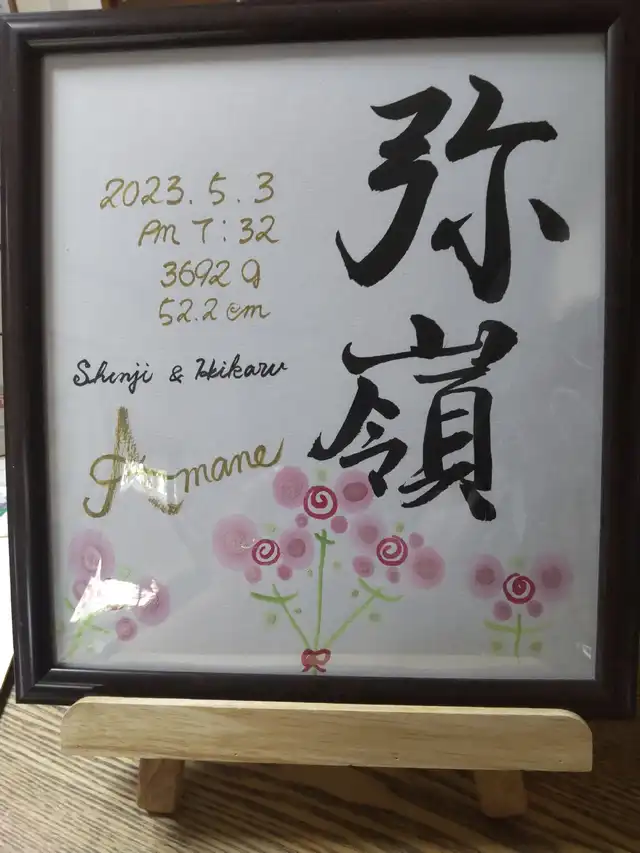 弥嶺
2023.5.3
PM 7:32
3692g
52.2cm
Shinji & Hikaru
Amane